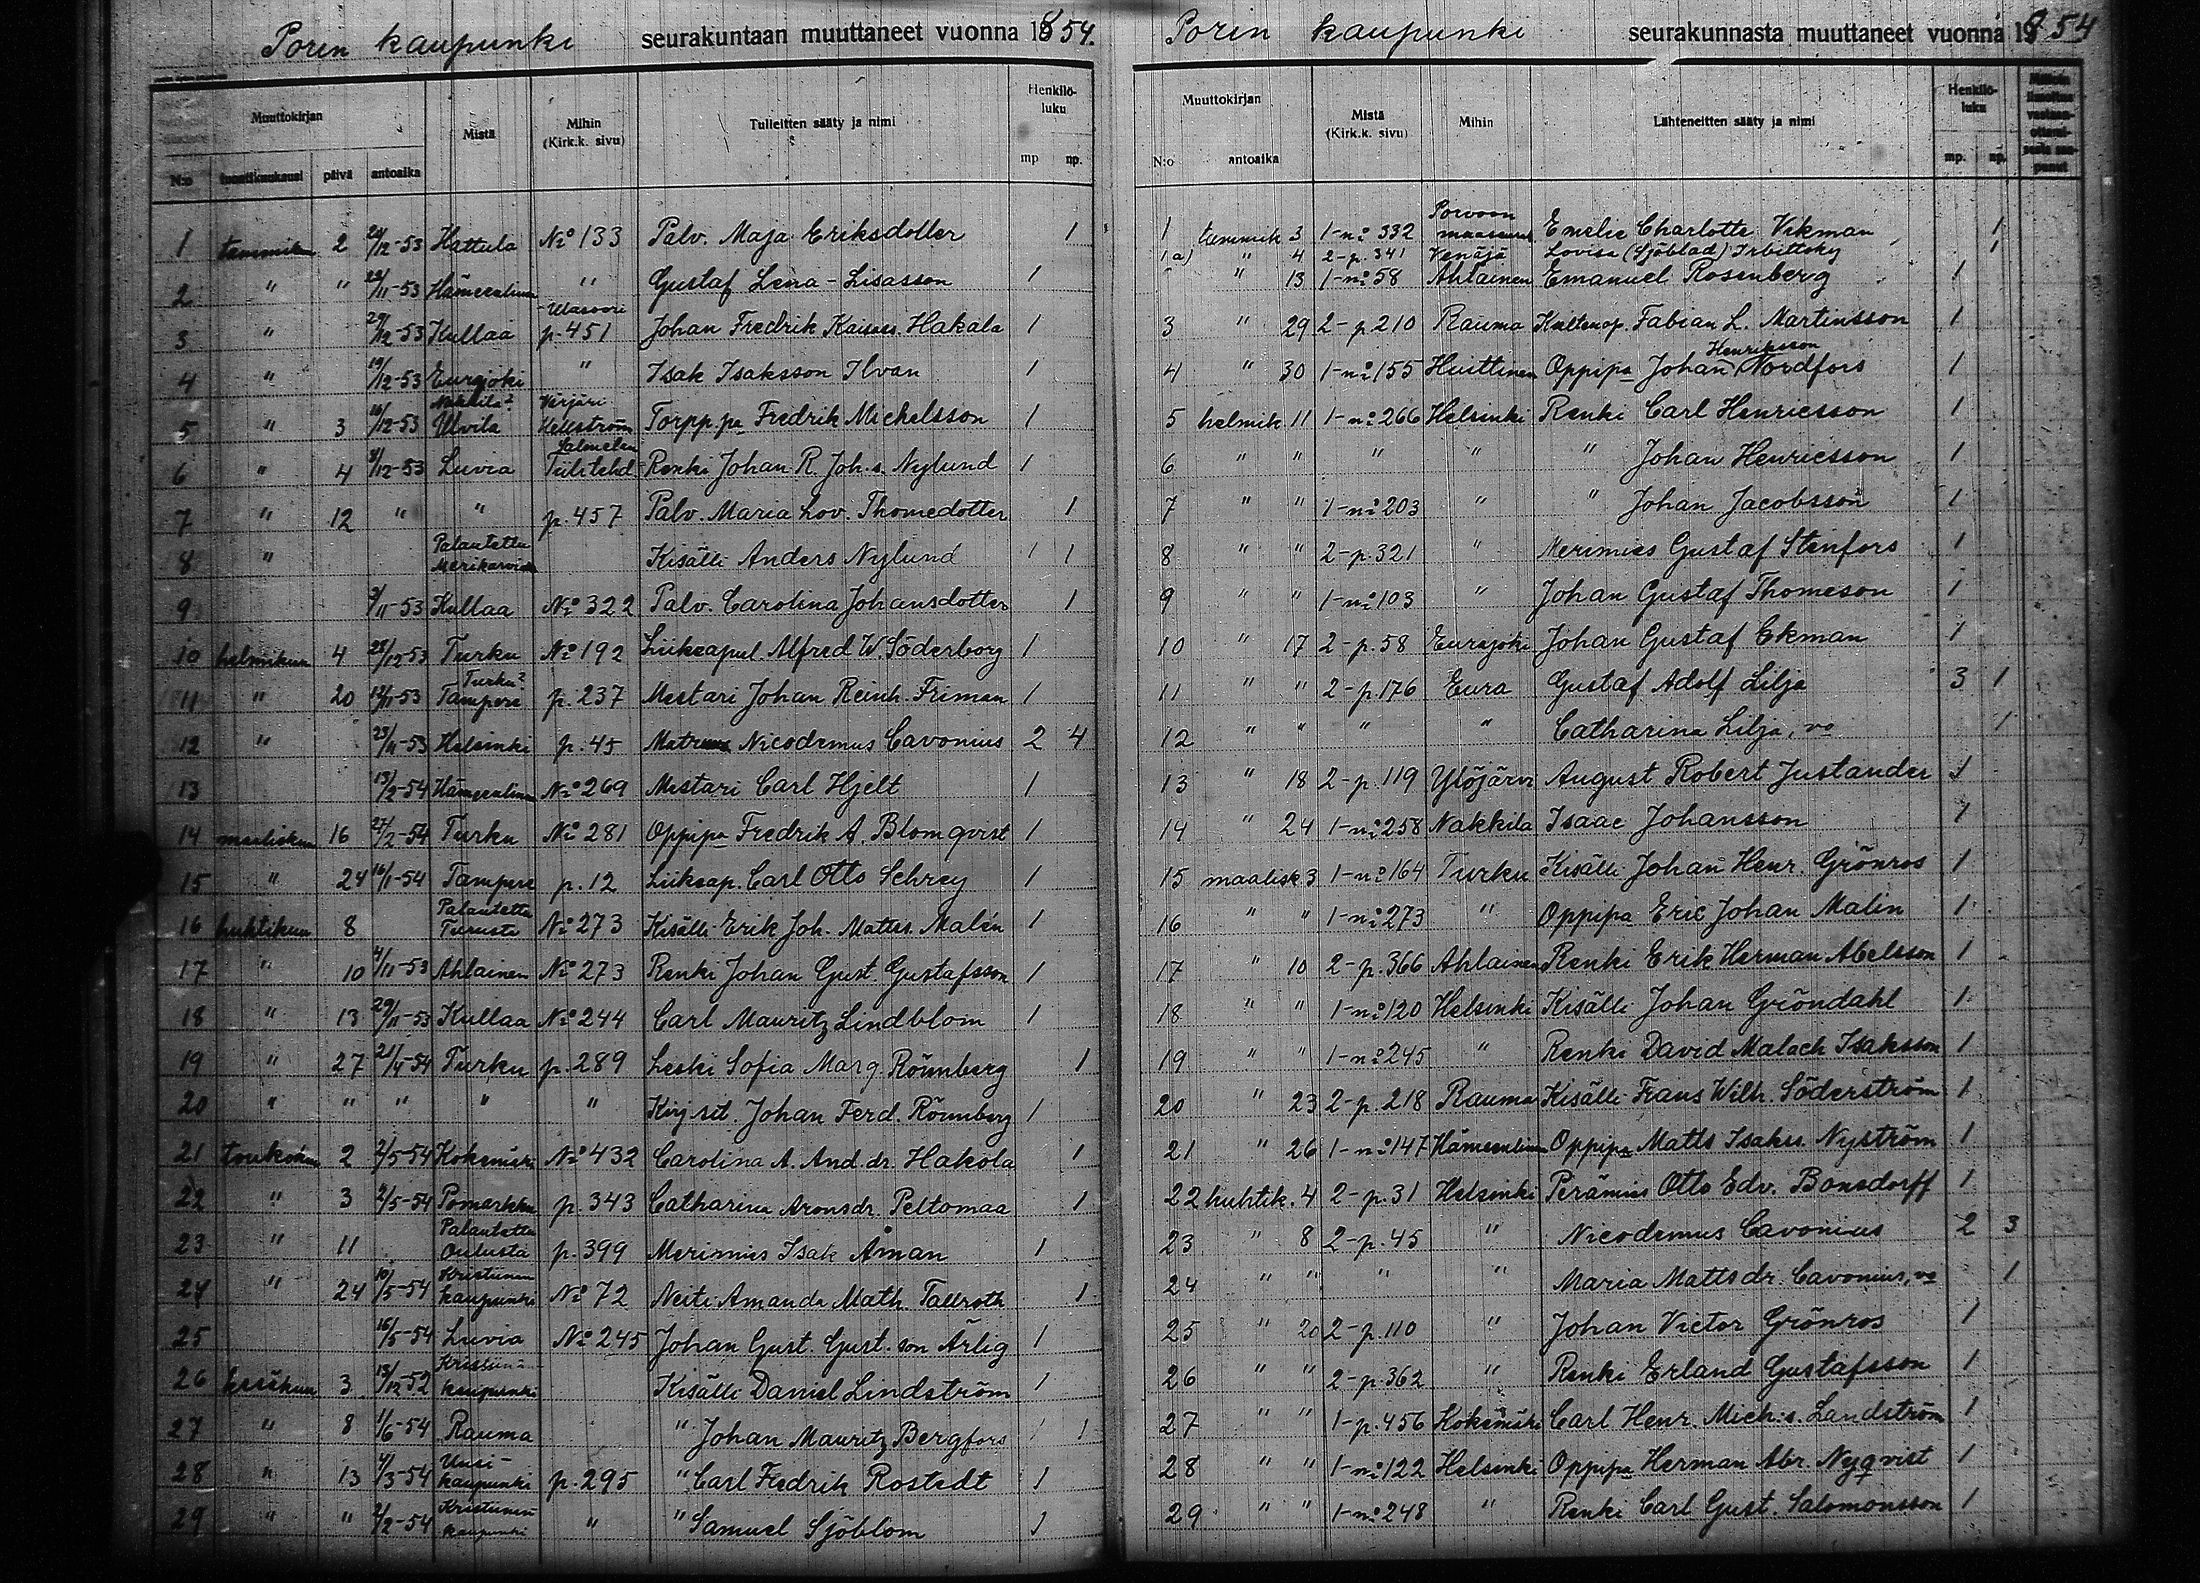 Porin kaupunki seurakuntaan muuttaneet vuonna 1854.
Muuttokirjan Mistä Mihin (Kirk.k. sivu) Tulleitten sääty ja nimi Henkilö-luku
N:o päivä antoaika mp np.
1 tammikuu 2 24/12-53 Hattula No 133 Palv. Maja Eriksdotter 1
2 " " 23/11-53 Hämeenlinna " Gustaf Lena-Lisasson 1
3 " 29/12-53 Kullaa Ulasoori p. 451 Johan Fredrik Kaisass. Hakala 1
4 " 19/12-53 Eurajoki " Isak Isaksson Ilvan 1
5 " 3 16/12-53 Nakkila? Ulvila Verjäri Hellström Torpp.pa Fredrik Michelsson 1
6 " 4 8/12-53 Luvia Salmelan Tulitehd. Renki Johan R. Joh.s. Nylund 1
7 " 12 " " p. 457 Palv. Maria Lov. Thomedotter 1
8 " Palautettu Merikarvia Kisälli Anders Nylund 1 1
9 9/11-53 Kullaa No 322 Palv. Carolina Johansdotter 1
10 helmikuu 4 28/12-53 Turku No 192 Liikeapul. Alfred W. Söderborg 1
11 " 20 12/11-53 Turku? Tampere p. 237 Mestari Johan Reinh. Friman 1
12 " 23/11-53 Helsinki p. 45 Nicodemus Cavonius 2 4
13 13/2-54 Hämeenlinna No 269 Mestari Carl Hjelt 1
14 maaliskuu 16 27/2-54 Turku No 281 Oppipa Fredrik A. Blomqvist 1
15 " 24 16/1-54 Tampere p. 12 Liikeap. Carl Otto Schrey 1
16 huhtikuu 8 Palautettu Turusta No 273 Kisälli Erik Joh. Mattss. Malén 1
17 " 10 4/11-53 Ahlainen No 273 Renki Johan Gust. Gustafsson 1
18 " 13 29/11-53 Kullaa No 244 Carl Mauritz Lindblom 1
19 " 27 21/4-54 Turku p. 289 Leski Sofia Marg. Rönnberg 1
20 " " " " " Kirj.sit. Johan Ferd. Rönnberg 1
21 toukokuu 2 2/5-54 Kokemäki No 432 Carolina A. And.dr. Hakola 1
22 " 3 2/5-54 Pomarkku p. 343 Catharina Aronsdr. Peltomaa 1
23 " 11 Palautettu Oulusta p. 399 Merimies Isak Åman 1
24 " 24 10/5-54 Kristiinan kaupunki No 72 Neiti Amanda Math. Tallroth 1
25 16/5-54 Luvia No 245 Johan Gust. Gust.son Ärlig 1
26 kesäkuu 3 13/12-52 Kristiinankaupunki Kisälli Daniel Lindström 1
27 " 8 1/6-54 Rauma " Johan Mauritz Bergfors 1 1
28 " 13 4/3-54 Uusi-kaupunki p. 295 " Carl Fredrik Rostedt 1
29 " " 2/2-54 Kristiinan kaupunki " " Samuel Sjöblom 1
Porin kaupunki seurakunnasta muuttaneet vuonna 1854
Muuttokirjan Mistä (Kirk.k. sivu) Mihin Lähteneitten sääty ja nimi Henkilö-luku
N:o antoaika mp. np.
1 tammik 3 1-no 332 Porvoon maaseurak. Emelie Charlotte Vikman 1
1a) " 4 2-p. 341 Venäjä Lovisa (Sjöblad) Irbittoky 1
" 13 1-no 58 Ahlainen Emanuel Rosenberg 1
3 " 29 2-p. 210 Rauma Kultenop. Fabian L. Martinsson 1
4 " 30 1-no 155 Huittinen Oppipa Johan Henriksson Nordfors 1
5 helmik 11 1-no 266 Helsinki Renki Carl Henricsson 1
6 " " " " " Johan Henricsson 1
7 " " 1-no 203 " " Johan Jacobsson 1
8 " " 2-p. 321 " Merimies Gustaf Stenfors 1
9 " " 1-no 103 " Johan Gustaf Thomeson 1
10 " 17 2-p. 58 Eurajoki Johan Gustaf Ekman 1
11 " " 2-p. 176 Eura Gustaf Adolf Lilja 3 1
12 " " " " Catharina Lilja, vo 1
13 " 18 2-p. 119 Ylöjärvi August Robert Justander 1
14 " 24 1-no 258 Nakkila Isaac Johansson 1
15 maalisk 3 1-no 164 Turku Kisälli Johan Henr. Grönros 1
16 " " 1-no 273 " Oppipa Eric Johan Malin 1
17 " 10 2-p. 366 Ahlainen Renki Erik Herman Abelsson 1
18 " " 1-no 120 Helsinki Kisälli Johan Gröndahl 1
19 " " 1-no 245 " Renki David Malach Isaksson 1
20 " 23 2-p. 218 Rauma Kisälli Frans Wilh. Söderström 1
21 " 26 1-no 147 Hämeenlinna Oppipa Matts Isakss. Nyström 1
22 huhtik. 4 2-p. 31 Helsinki Perämies Otto Edv. Bonsdorff 1
23 " 8 2-p. 45 " Nicodemus Cavonius 2 3
24 " " " " Maria Mattsdr. Cavonius, vo 1
25 " 20 2-p. 110 " Johan Victor Grönros 1
26 " " 2-p. 362 " Renki Erland Gustafsson 1
27 " " 1-p. 456 Kokemäki Carl Henr. Mich:s. Landström 1
28 " " 1-no 122 Helsinki Oppipa Herman Abr. Nyqvist 1
29 " " 1-no 248 " Renki Carl Gust. Salomonsson 1